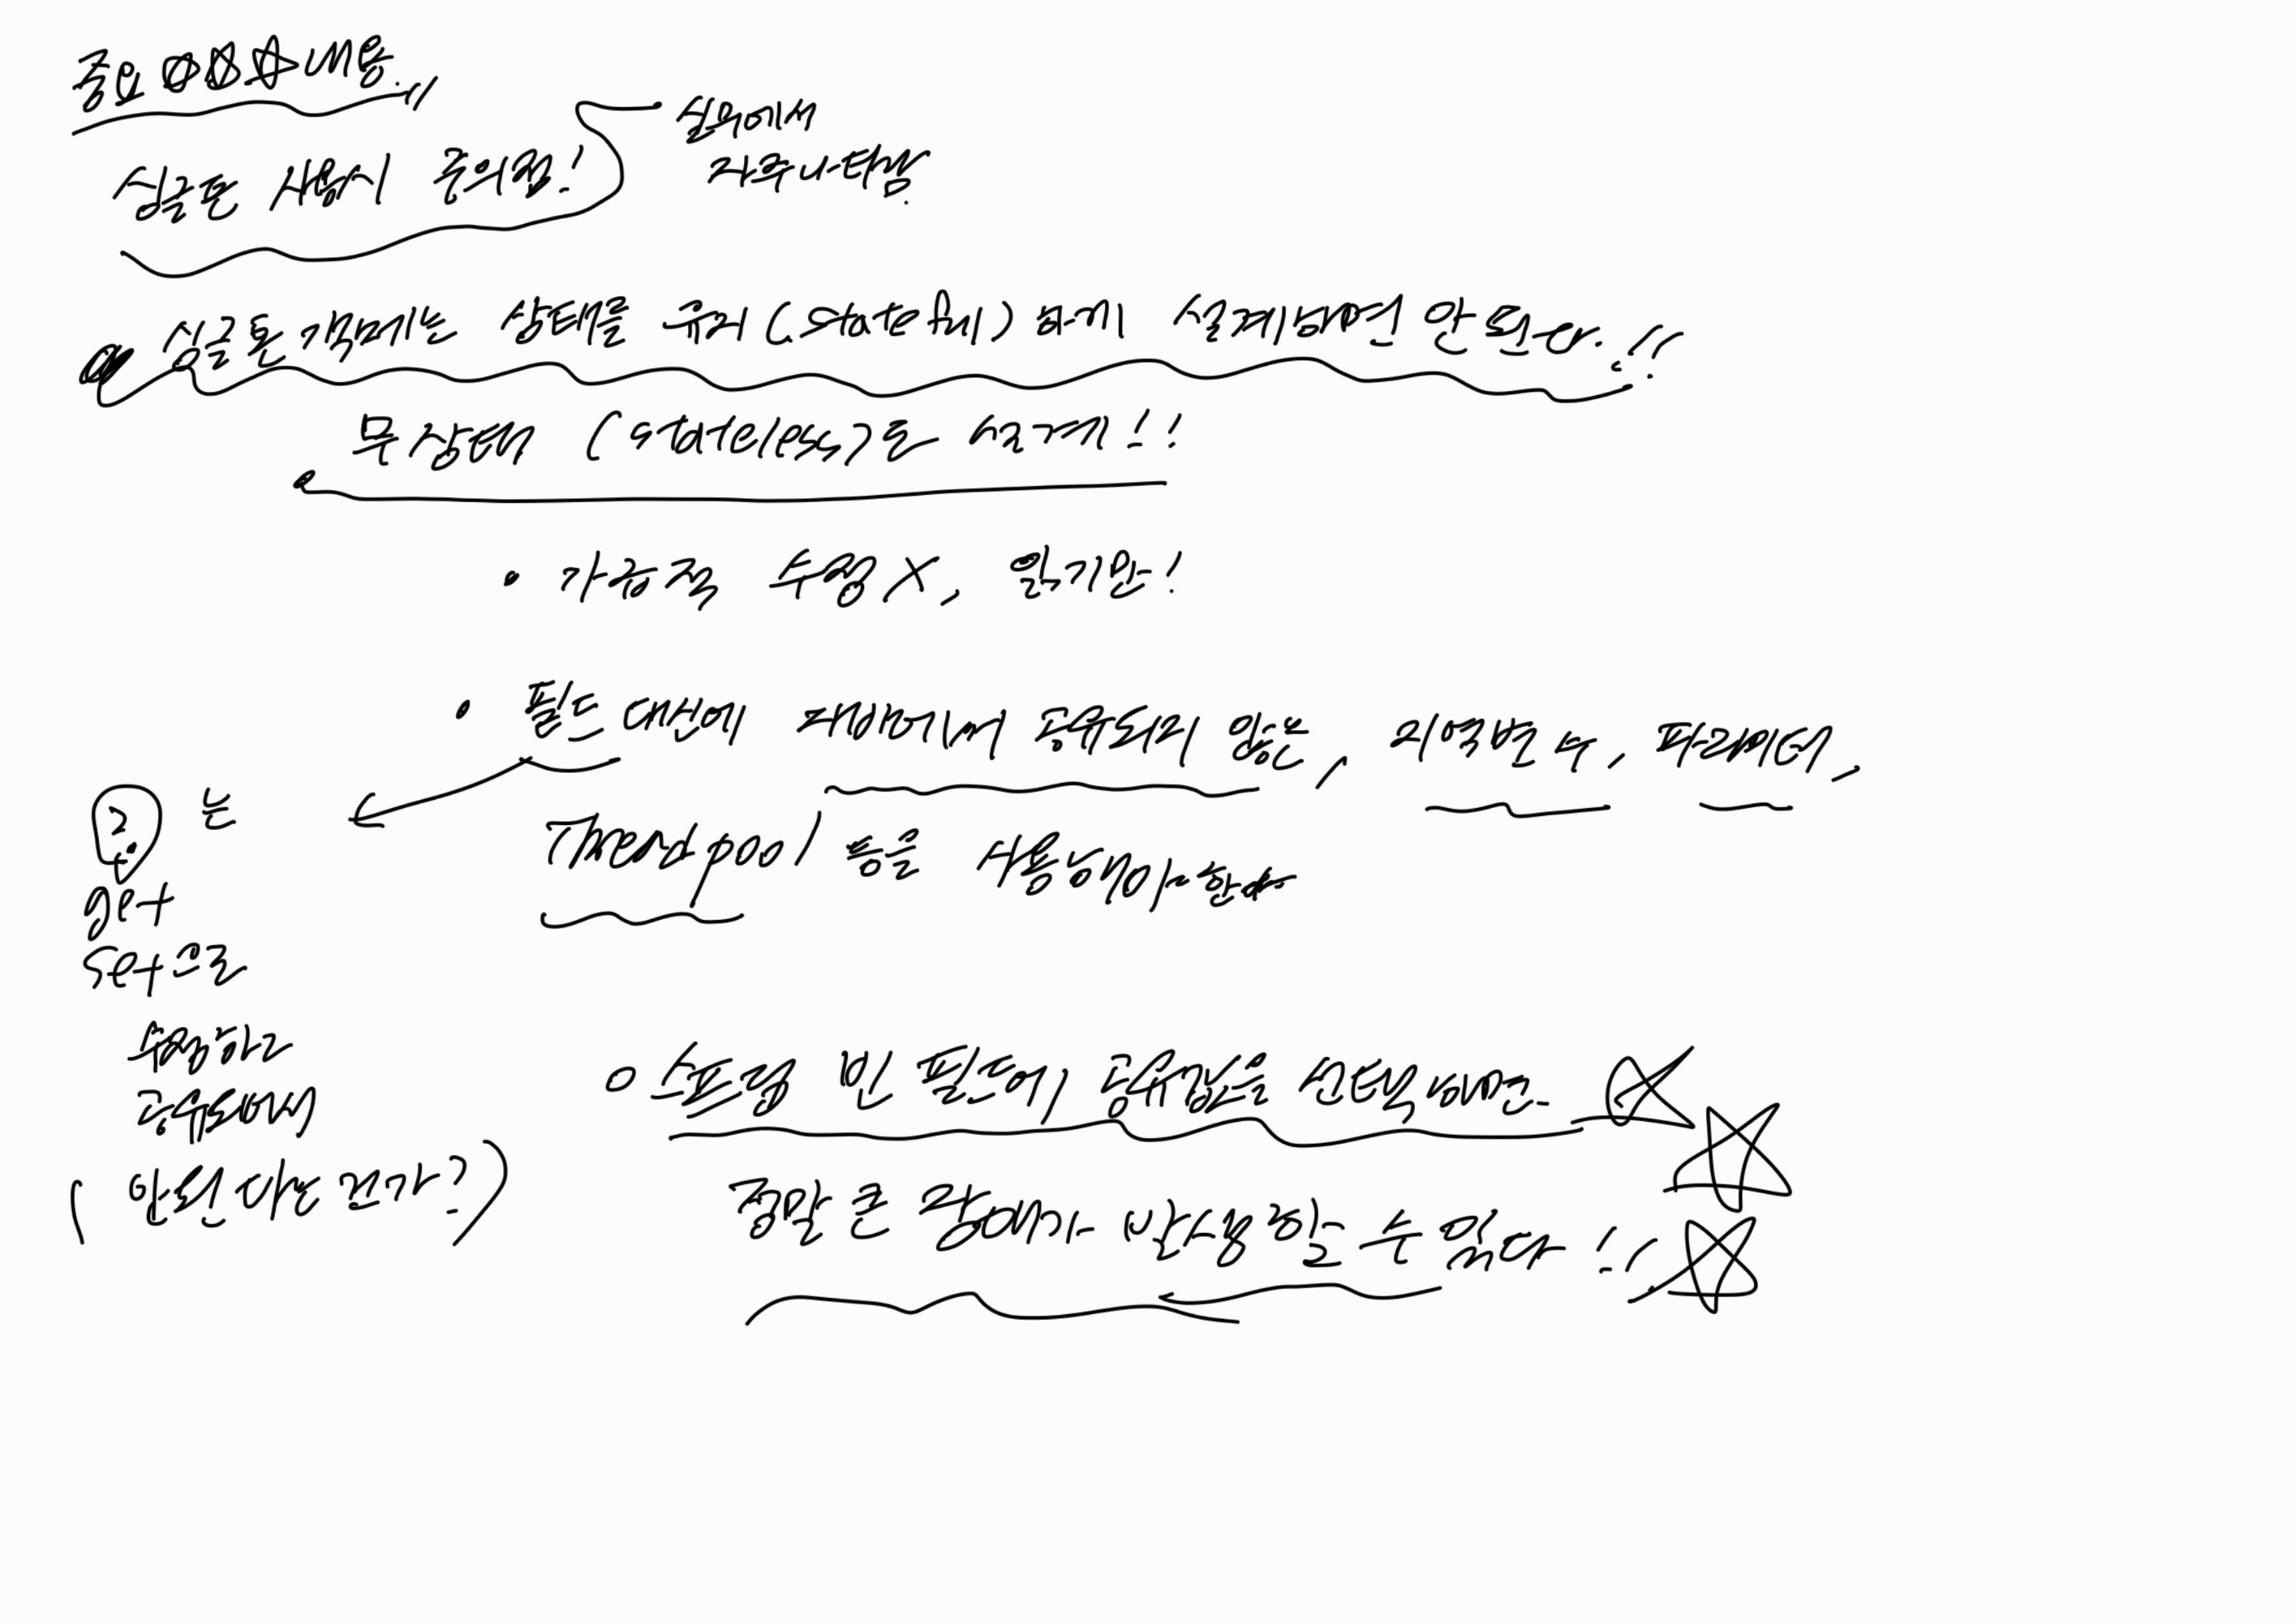 중요 ☆☆☆ 내용.
싱글톤 사용시 주의점!
실무에서
자주 나타남.
싱글톤 객체는 상태를 유지(stateful)하게 설계하면 안 된다.!!
무상태 (stateless)로 설계!!
• 가능한 수정 X, 읽기만!
• 필드 대신에 자바에서 공유되지 않는, 지역변수, 파라미터,
Thread pool 등을 사용해야 한다
는
get
set으로
수정하고
공유되어서
( 안된다는 건가?)
○ 스프링 빈 필드에, 공유값을 선택하면
정말 큰 장애가 발생할 수 있다!!